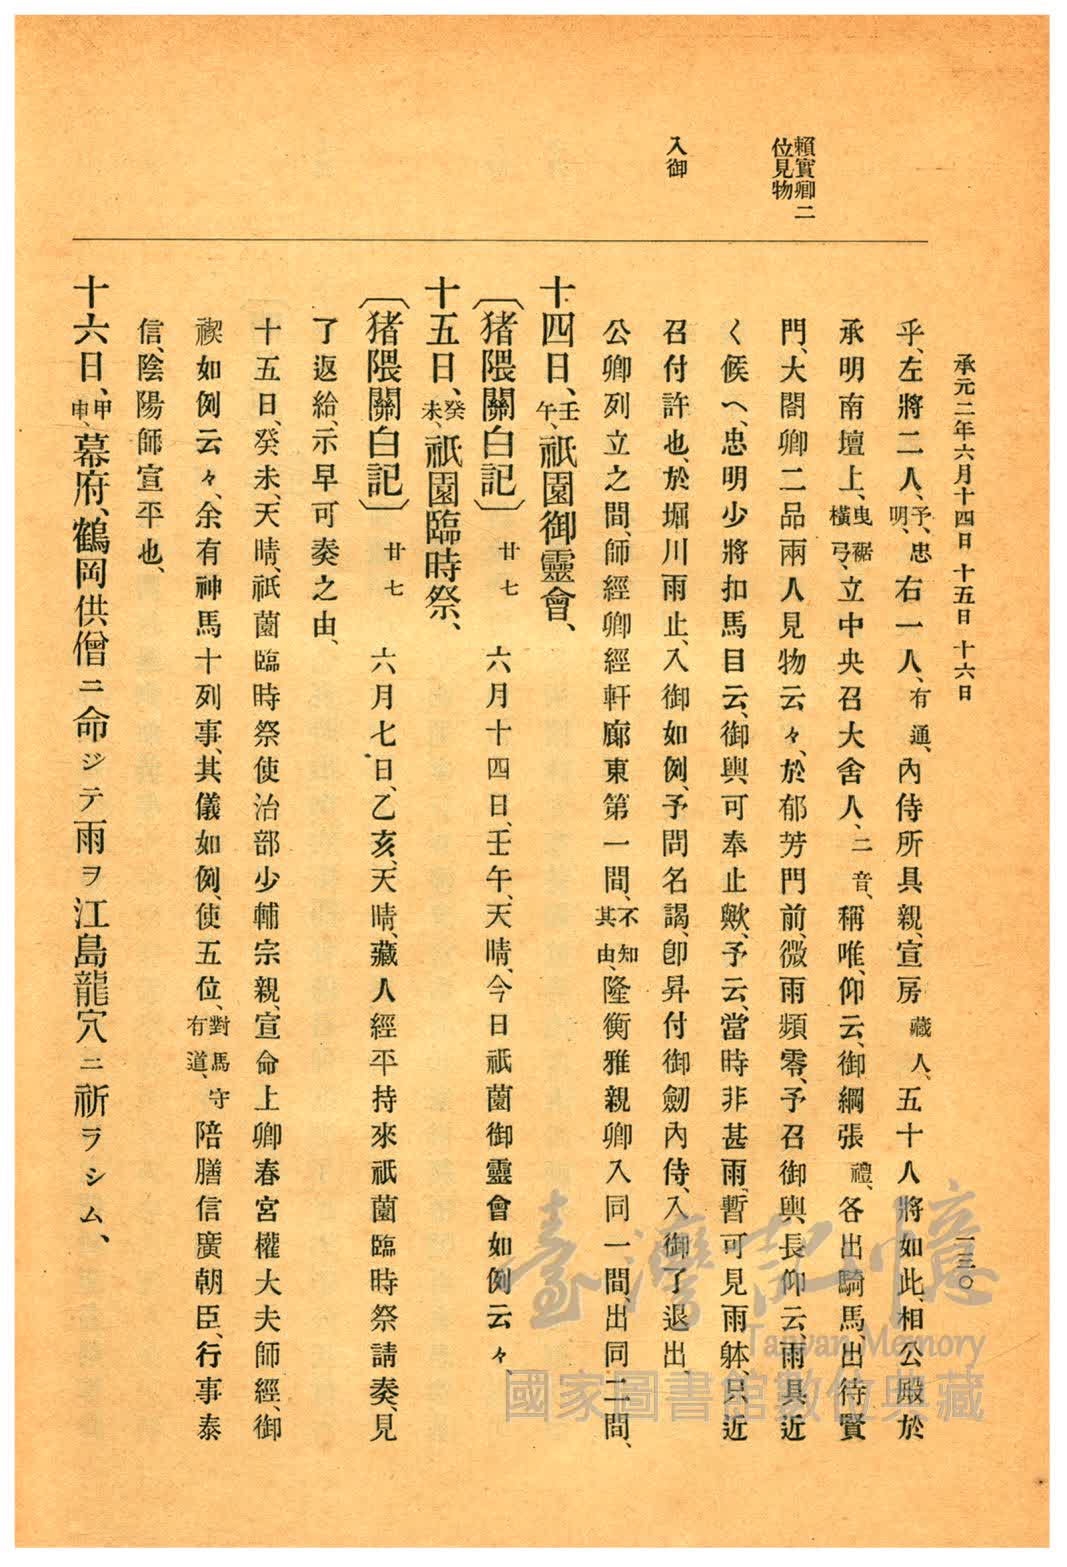 承元二年六月十四日 十五日 十六日
一三〇
賴實卿二
位見物
入御
乎、左將二人、予、忠明、右一人、有通、內侍所具親、宣房藏人、五十人將如此、相公殿於
承明南壇上、曳裾橫弓、立中央召大舍人、二音、稱唯、仰云、御綱張禮、各出騎馬、出待賢
門、大閤卿二品兩人見物云々、於郁芳門前、微雨頻零、予召御輿長仰云、雨具近
く候へ、忠明少將扣馬目云、御輿、可奉止歟、予云、當時非甚雨、暫可見雨躰、只近
召付許也、於堀川雨止、入御如例、予問名謁、卽昇付御劒內侍、入御了退出、
公卿列立之間、師經卿經軒廊東第一間、不知其由、隆衡雅親卿入同一間、出同二間、
十四日、壬午、祇園御靈會、
〔猪隈關白記〕 廿七 六月十四日、壬午、天晴、今日祇薗御靈會如例云々、
十五日、癸未、祇園臨時祭、
〔猪隈關白記〕 廿七 六月七日、乙亥、天晴、藏人經平持來祇薗臨時祭請奏、見
了返給、示早可奏之由、
十五日、癸未、天晴、祇薗臨時祭使治部少輔宗親、宣命上卿春宮權大夫師經、御
禊如例云々、余有神馬十列事、其儀如例、使五位、對馬守有道、陪膳信廣朝臣、行事泰
信、陰陽師宣平也、
十六日、甲申、幕府、鶴岡供僧ニ命ジテ雨ヲ江島龍穴ニ祈ラシム、
臺灣記憶
Taiwan Memory
國家圖書館數位典藏